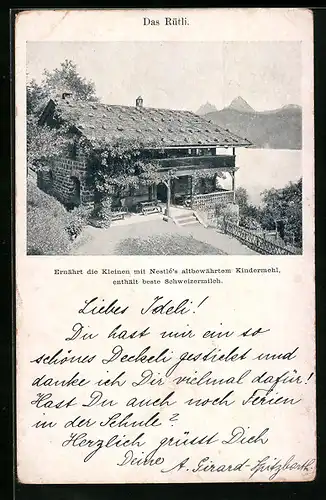 Das Rütli.
Ernährt die Kleinen mit Nestlé's altbewährtem Kindermehl,
enthält beste Schweizermilch.
Liebes Ideli!
Du hast mir ein so
schönes Deckeli gestickt und
danke ich Dir vielmal dafür!
Hast Du auch noch Ferien
in der Schule?
Herzlich grüsst Dich
Deine A. Girard-Spitzbarth.